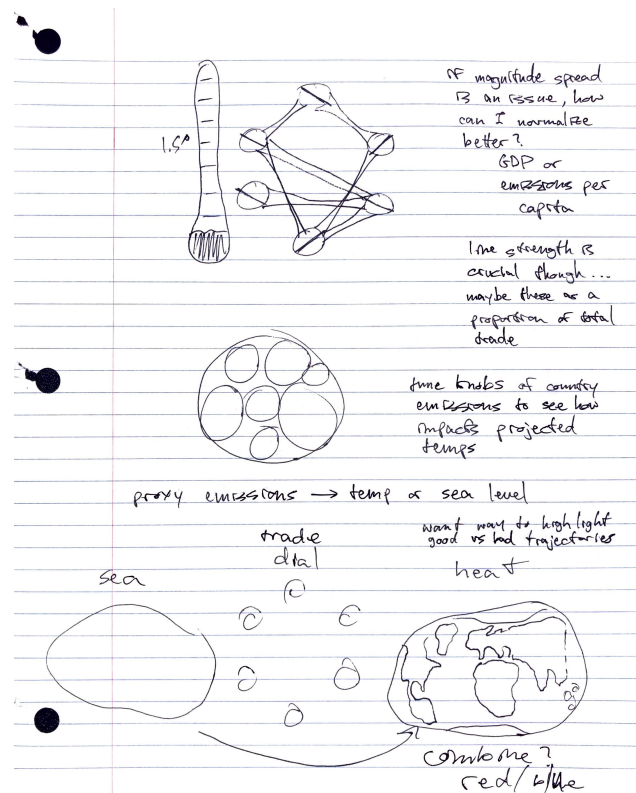 If magnitude spread
is an issue, how
can I normalize
better?
GDP or
emissions per
capita
1.5°
line strength is
crucial though...
maybe these as a
proportion of total
trade
tune knobs of country
emissions to see how
impacts projected
temps
proxy emissions → temp or sea level
want way to highlight
good vs bad trajectories
trade
dial
sea
heat
combine?
red/blue